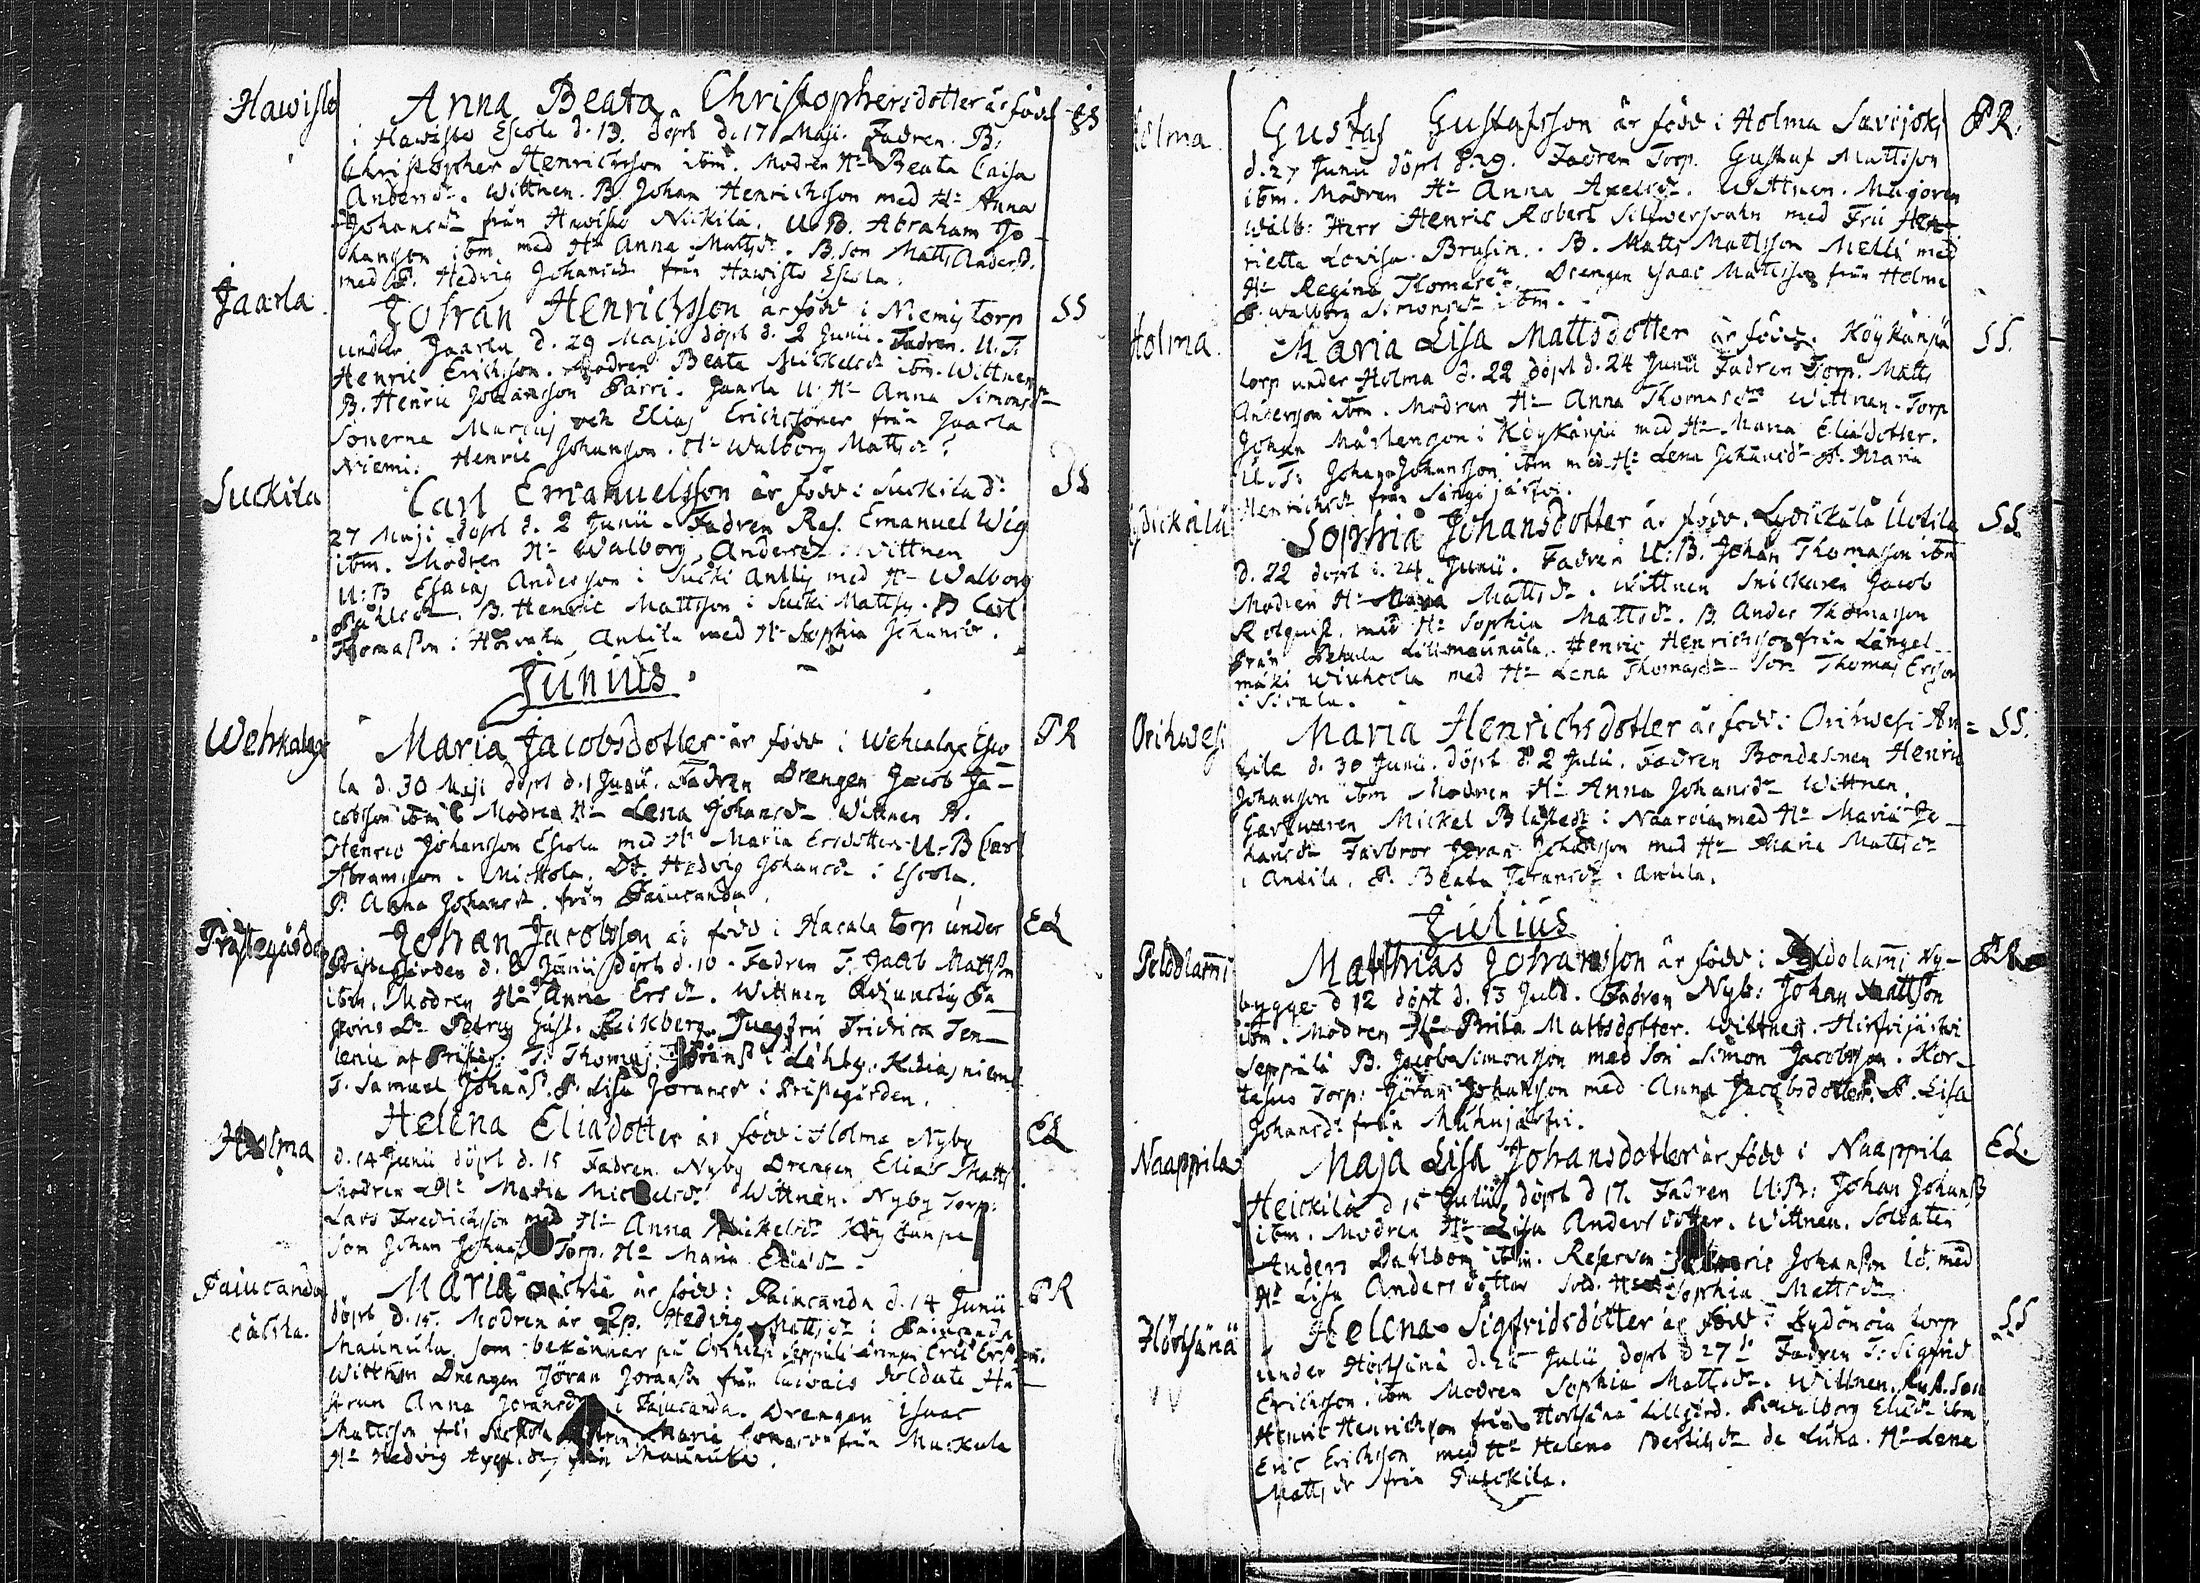 Hawisto Anna Beata Christophersdotter är född SS
i Hawisto Escola d. 13. döpt d. 17 Maji. Fadren B:
Christopher Henrichsson ibm. Modren H: Beata Caisa
Andersdr. Wittnen. B. Johan Henrichsson med H: Anna
Johansdr från Hawisto Nickila. U. B. Abraham Jo-
hansson ibm. med H: Anna Mattsdr. B. Son Matts Anderss.
med P. Hedvig Johansdr från Hawisto Escola.
Jaarla. Johan Henrichsson är född i Niemis torp SS
under Jaarla d. 29 Maji döpt d. 2 Junii. Fadren. U. T.
Henric Ericksson. Modren Beata Mickelsdr ibm. Wittnen
B. Henric Johansson Parri. Jaarla U: H: Anna Simonsdr
Sönerne Marcus och Elias Erickssöner från Jaarla
Niemi. Henric Johansson. H: Walborg Mattsdr
Suckila Carl Emanuelsson är född i Suckila d: SS
27 Maji döpt d. 2 Junii. Fadren Res. Emanuel Wig
ibm. Modren H: Walborg Andersdr. Wittnen
U: B Esaias Andersson i Sucki Anttis med H: Walborg
Påhlsdr. B. Henric Mattsson i Sucki Mattss. B Carl
Thomasson i Antila med H: Sophia Johansdr.
Junius.
Wehkalax Maria Jacobsdotter är född i Wehcalax Esco- PR
la d. 30 Maji döpt d. 1 Junii. Fadren Drengen Jacob Ja-
cobsson ibm Modren H: Lena Johansdr Wittnen B.
Henric Johansson Escola med H: Maria Ersdotter. U. B Carl
Abramsson i Mickola. Dr. Hedvig Johansdr i Escola.
P. Anna Johansdr. från Paiucanda.
Prästegården Johan Jacobsson är född i Hacala torp under EL
Prästegården d. 8 Junii döpt d. 10. Fadren T. Jacob Mattsson
ibm. Modren H: Anna Ersdr. Wittnen Adjunctus Pa-
storis Dn Petrus Gust. Jungfru Fridrica
af Prästeg: T. Thomas i Kidiasniemi
T. Samuel Johanss. P. Lisa Joransdr i Prästegården.
Holma Helena Eliadotter är född i Holma Nyby EL
d. 14 Junii döpt d. 15 Fadren. Nyby Drengen Elias Matts.
Modren H: Maria Mickelsdr. Wittnen. Nyby Torp:
Lars Fredrichsson med H: Anna Mickelsdr Köykänpä
Son Johan Johanss Torp. H: Maria Eliadr.
Paiucanda Maria oächta är född i Paiucanda d. 14 Junii PR
oächta. döpt d. 15. Modren är Pp. Hedvig Mattsdr i Paiucanda
Maunula, som bekänner på Orihwesi Seppälä drengen Eric Erss.
Wittnen Drengen Jöran Joranss från Soldate Hu-
strun Anna Joransdr i Paiucanda. Drengen Isaac
Mattsson från Maria från Muckula
H: Hedvig från Maunula.
Holma. Gustaf Gustafsson är född i Holma Savijoki PR.
d. 27 Junii döpt d. 29. Fadren Torp. Gustaf Mattsson
ibm. Modren H: Anna Axelsdr. Wittnen. Majoren
Wälb: Herr Henric Robert Silfwersvahn med Fru Hen-
rietta Lovisa Brusin. B. Matts Mattsson Melli med
H: Regina Thomasdr. Drengen Isaac Mattsson från Holma
P. Walborg Simonsdr ibm.
Holma. Maria Lisa Mattsdotter är född i Köykänpä SS.
torp under Holma d. 22 döpt d. 24 Junii Fadren Torp. Matts
Andersson ibm. Modren H: Anna Thomasdr Wittnen. Torp
Johan Mårtensson i Köykänpä med H: Maria Eliadotter.
U. T: Johan Johansson ibm med H: Lena Johansdr P. Maria
Henrichsdr från Längijärfvi.
Lydickälä Sophia Johansdotter är född i Lydickälä Uotila SS
d. 22 döpt d. 24 Junii. Fadren U: B. Johan Thomasson ibm
Modren H: Maria Mattsdr. Wittnen Snickaren Jacob
Rotquist. med H: Sophia Mattsdr. B. Anders Thomasson
från Lillmaunula. Henric Henrichsson från Längel-
mäki med H: Lena Thomasdr Son Thomas Ersson
i Sivala.
Orihwesi Maria Henrichsdotter är född i Orihwesi An- SS.
tila d. 30 Junii. döpt d. 2 Julii. Fadren Bondesonen Henric
Johansson ibm Modren H: Anna Johansdr Wittnen.
Garfvaren Mickel i Naarva med H: Maria Jo-
hansdr Farbror Jöran Johansson med H: Maria Mattsdr
i Antila. P. Beata Joransdr i Antila.
Julius
Peldolammi Matthias Johansson är född i Peldolammi Ny- PR
bygge d 12 döpt d. 13 Julii. Fadren Nyb: Johan Mattsson
ibm. Modren H: Brita Mattsdotter. Wittnen. Hirfvijärfvi
Seppälä B. Jacob Simonsson med Son Simon Jacobsson. Kor-
Torp: Jöran Johansson med Anna Jacobsdotter. P. Lisa
Johansdr från Muhnjärfvi.
Naappila Maja Lisa Johansdotter är född i Naappila EL.
Heickilä d 15 Julii döpt d 17. Fadren U: B: Johan Johanss
ibm. Modren H: Lisa Andersdotter. Wittnen. Soldaten
Anders Dahlbom ibm. Reserven Johansson ib. med
H: Lisa Andersdotter Sold. H: Sophia Mattsdr
Hörtsänä Helena Sigfridsdotter är född i torp SS
under Hörtsänä d. 25 Julii döpt d 27 Fadren T: Sigfrid
Ericksson. ibm Modren Sophia Mattsdr. Wittnen. Son
Henric Henrichsson från Hörtsänä Lillgård. P. Walborg Eliadr ibm
Eric Ericksson med H: Helena Bertilsdr H: Lena
Mattsdr från Puickila.